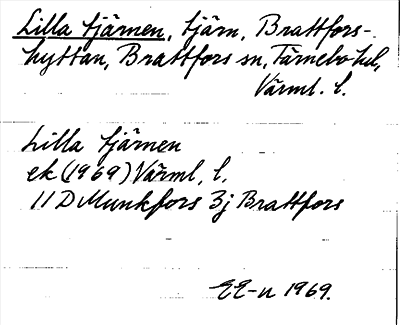 Lilla tjärnen, tjärn, Brattfors-
hyttan, Brattfors sn, Färnebo hd,
Värml. l.
Lilla tjärnen
ek (1969) Värml. l.
11 D Munkfors 3j Brattfors
EE-n 1969.